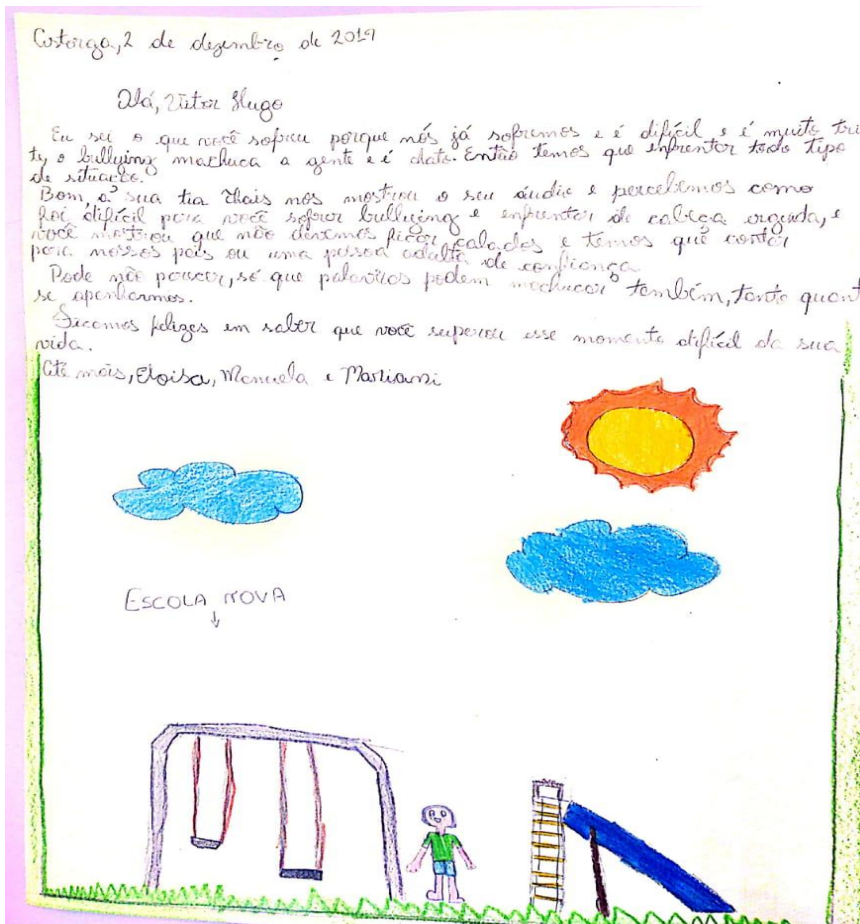 Astorga, 2 de dezembro de 2019
Olá, Vitor Hugo
Eu sei o que você sofreu porque nós já sofremos e é difícil e é muito tris
te, o bullying machuca a gente e é chato. Então temos que enfrentar todo tipo
de situação.
Bom, a sua tia Thais nos mostrou o seu áudio e percebemos como
foi difícil para você sofrer bullying e enfrentar de cabeça erguida, e
você mostrou que não devemos ficar calados e temos que contar
para nossos pais ou uma pessoa adulta de confiança
Pode não parecer, só que palavras podem machucar também, tanto quant
se apanharmos.
Ficamos felizes em saber que você superou esse momento difícil da sua
vida.
Até mais, Eloisa, Manuela e Mariani
ESCOLA NOVA